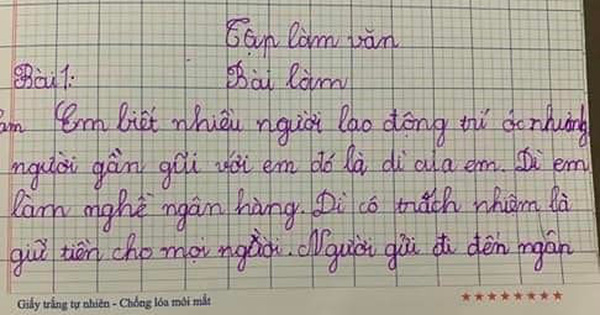 Tập làm văn
Bài 1: Bài làm
Em biết nhiều người lao động trí óc nhưng
người gần gũi với em đó là dì của em. Dì em
làm nghề ngân hàng. Dì có trách nhiệm là
giữ tiền cho mọi người. Người gửi đi đến ngân
Giấy trắng tự nhiên - Chống lóa mỏi mắt